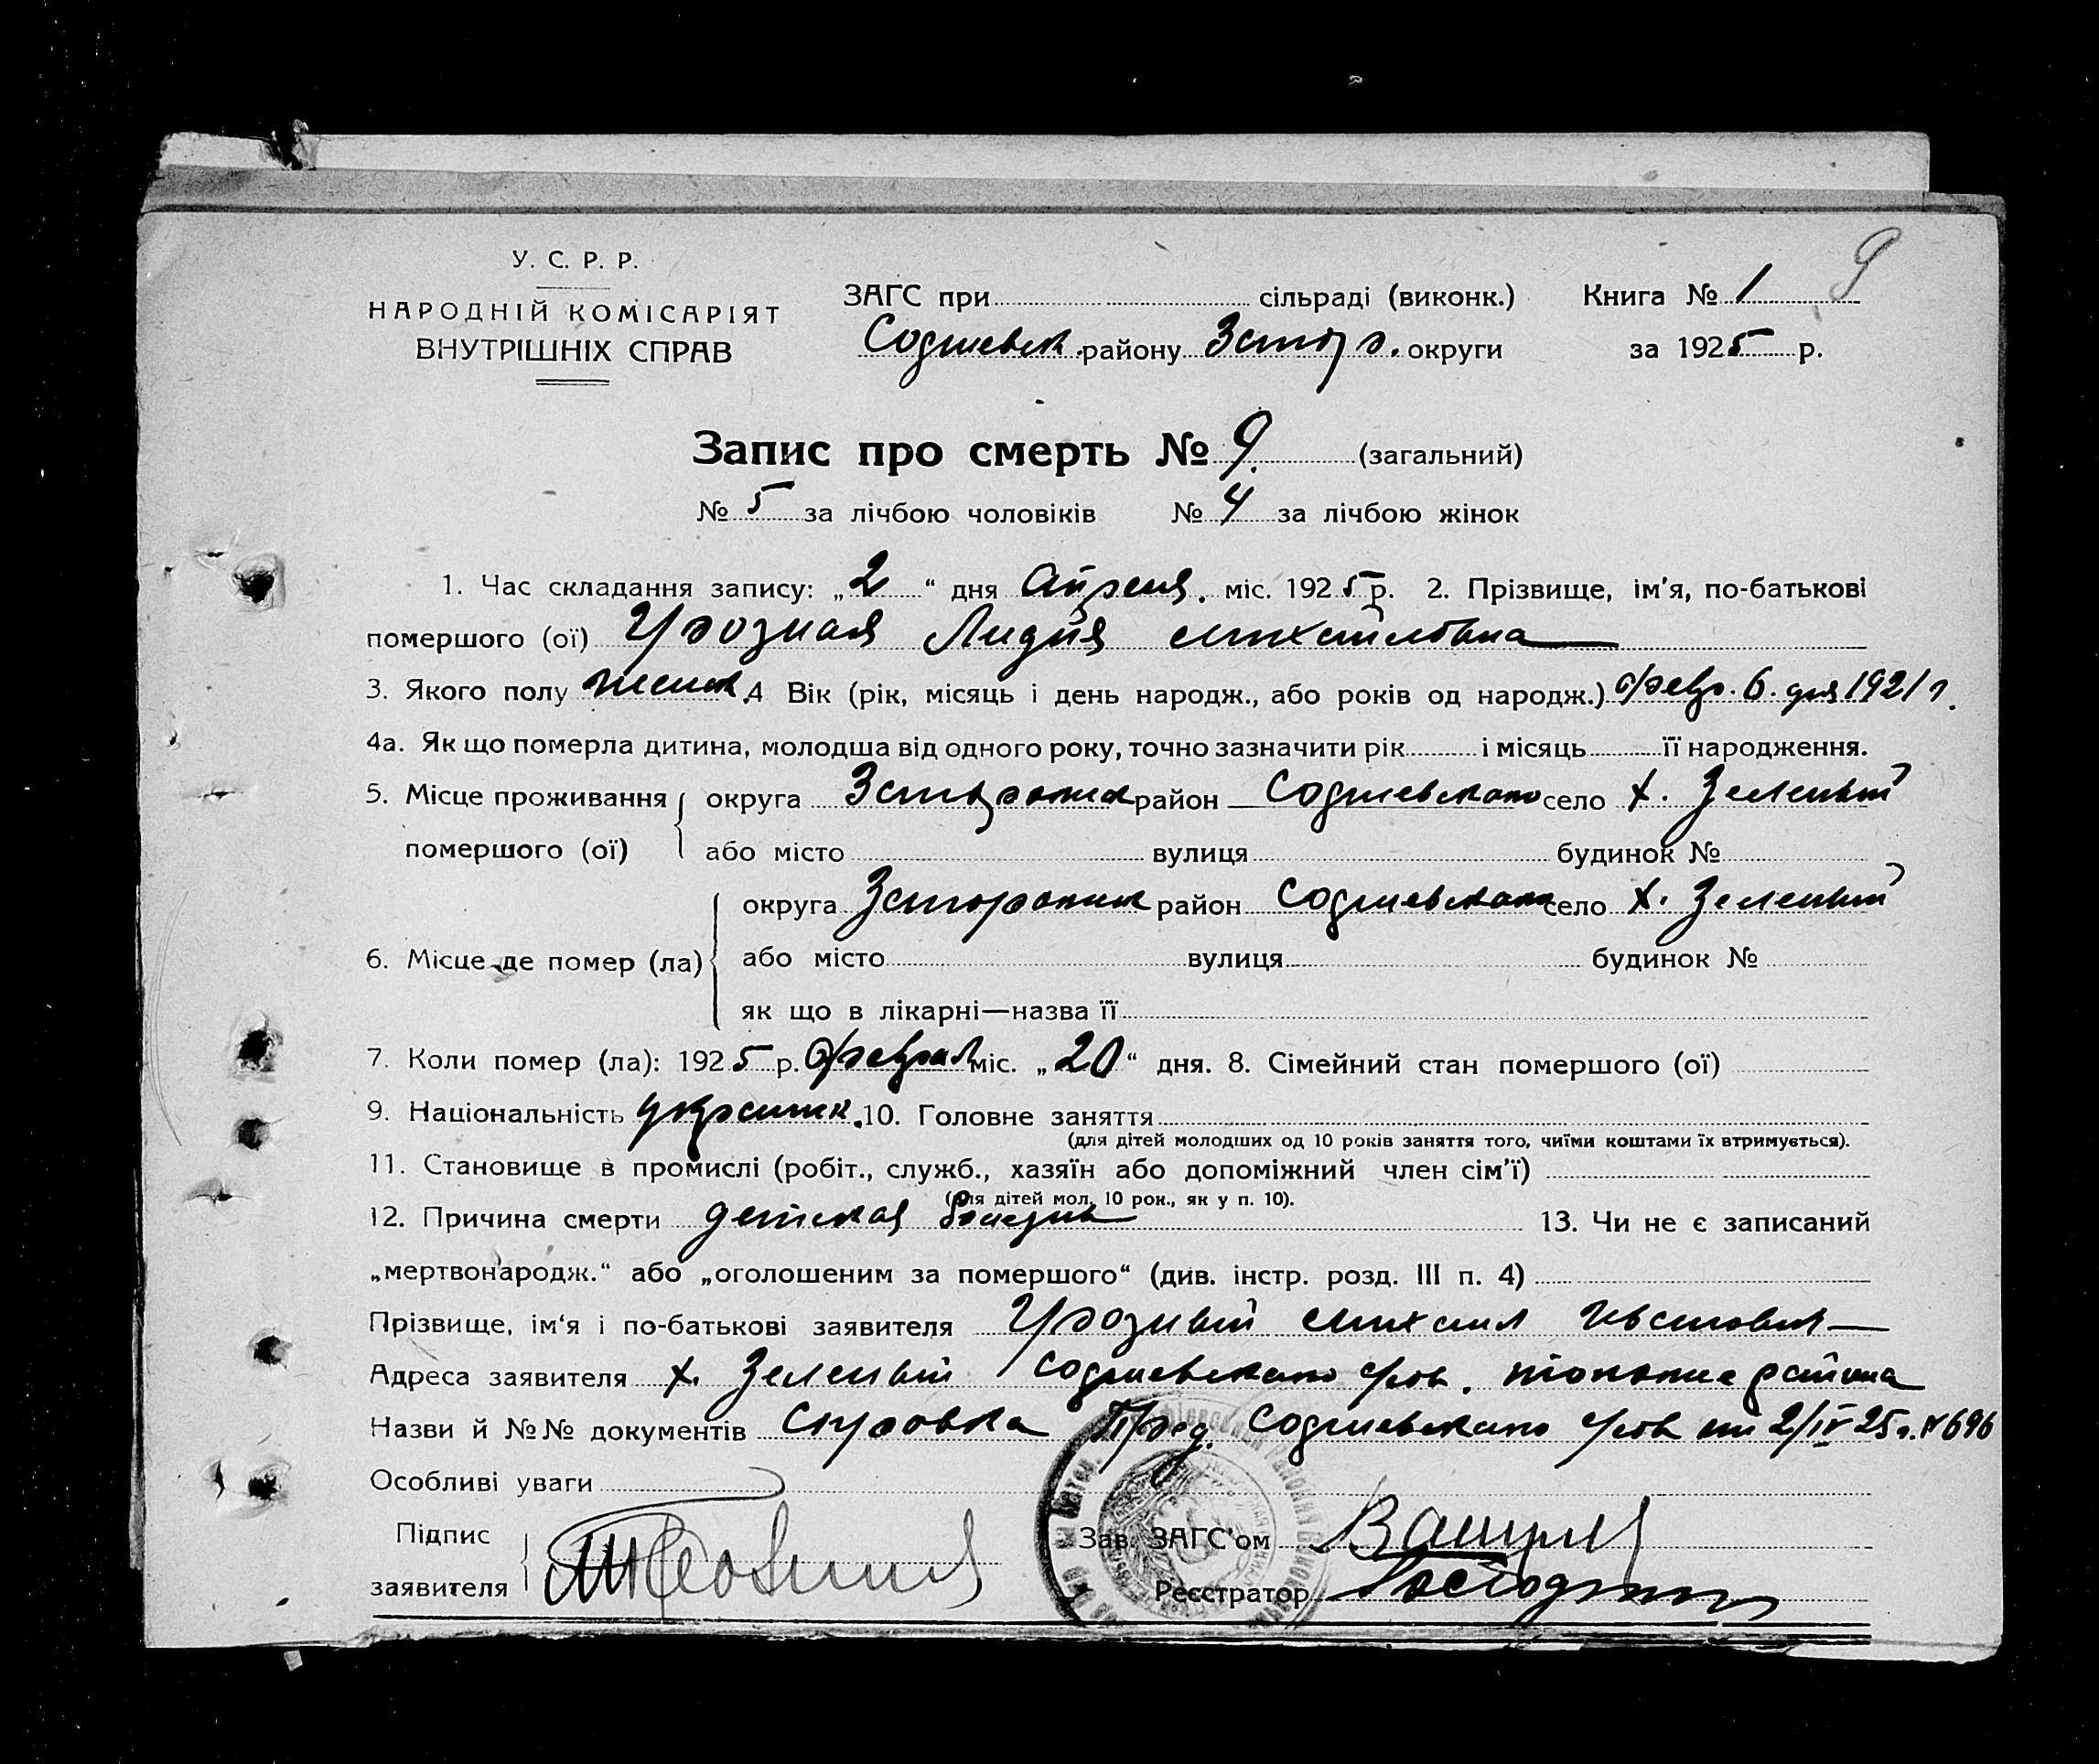 9
У. С. Р. Р.
НАРОДНІЙ КОМІСАРІЯТ
ВНУТРІШНІХ СПРАВ
ЗАГС при сільраді (виконк.)
Софиевск. району Запор. округи
Книга № 1
за 1925 р.
Запис про смерть № 9. (загальний)
№ 5 за лічбою чоловіків № 4 за лічбою жінок
1. Час складання запису: „2“ дня Апреля. міс. 1925 р. 2. Прізвище, ім'я, по-батькові
помершого (ої) Грозная Лидия Михайловна
3. Якого полу женск. 4 Вік (рік, місяць і день народж., або років од народж.) февр. 6. дня 1921 г.
4а. Як що померла дитина, молодша від одного року, точно зазначити рік і місяць її народження.
5. Місце проживання помершого (ої)
округа Запорожск район Софиевского село х. Зеленый
або місто вулиця будинок №
6. Місце де помер (ла)
округа Запорожск район Софиевского село х. Зеленый
або місто вулиця будинок №
як що в лікарні—назва її
7. Коли помер (ла): 1925 р. Феврал міс. „20“ дня. 8. Сімейний стан помершого (ої)
9. Національність украинк. 10. Головне заняття
(для дітей молодших од 10 років заняття того, чиїми коштами їх втримується).
11. Становище в промислі (робіт., служб., хазяїн або допоміжний член сім'ї)
(для дітей мол. 10 рок., як у п. 10).
12. Причина смерти детская болезнь 13. Чи не є записаний
„мертвонародж.“ або „оголошеним за помершого“ (див. інстр. розд. III п. 4)
Прізвище, ім‘я і по-батькові заявителя Грозный Михаил Иванович
Адреса заявителя х. Зеленый Софиевского района
Назви й №№ документів Справка Пред. Софиевского от 2/IV 25 г. № 696
Особливі уваги
Підпис
заявителя
Зав. ЗАГС'ом
Реєстратор